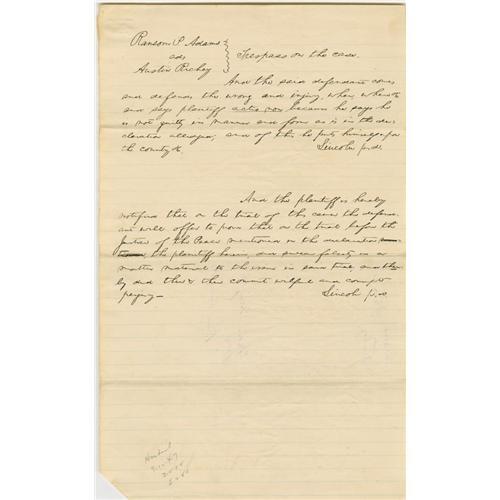 Ransom P. Adams
ads
Austin Richey
Trespass on the case.
And the said defendant comes
and defends the wrong and injury, when where &c
and says plaintiff actio non because he says he
is not guilty in manner and form as is in the dec-
laration alleged; and of this he puts himself upon
the country &c.
Lincoln p.d.
And the plaintiff is hereby
notified that on the trial of this cause the defend-
ant will offer to prove that on the trial before the
Justice of the Peace mentioned in the declaration
the plaintiff herein, did swear falsely in a
matter material to the issue in said trial and there-
by did then & there commit wilful and corrupt
perjury—
Lincoln p.d.